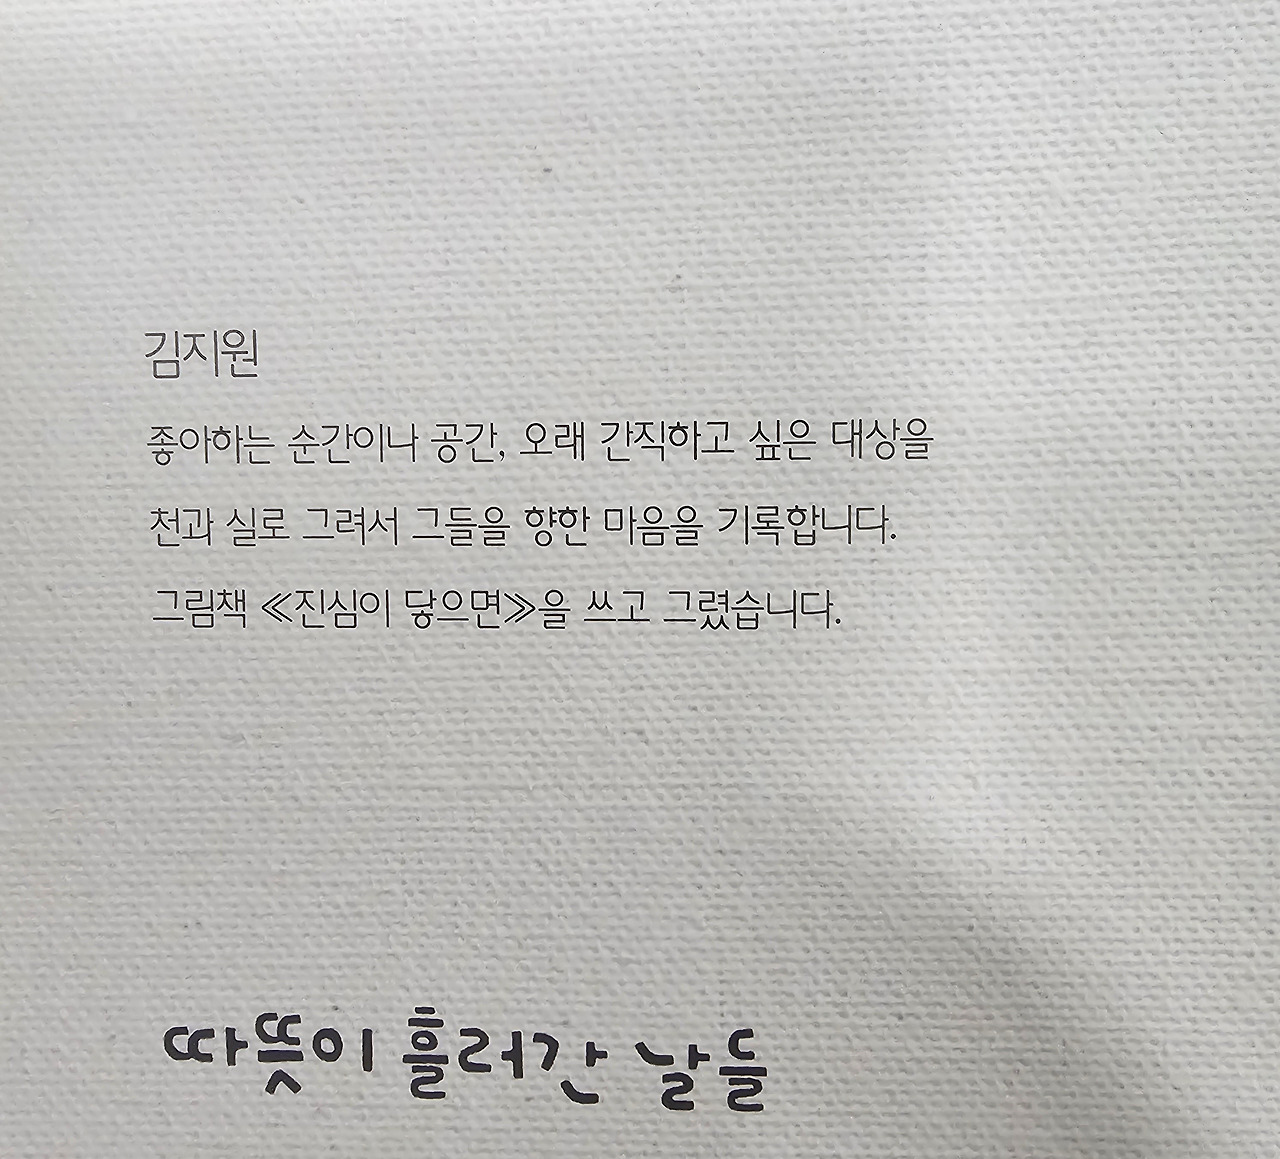 김지원
좋아하는 순간이나 공간, 오래 간직하고 싶은 대상을
천과 실로 그려서 그들을 향한 마음을 기록합니다.
그림책 ≪진심이 닿으면≫을 쓰고 그렸습니다.
따뜻이 흘러간 날들